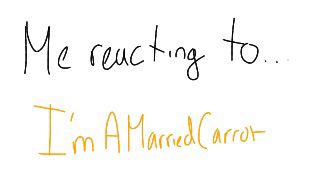 Me reacting to...
I'mAMarriedCarrot